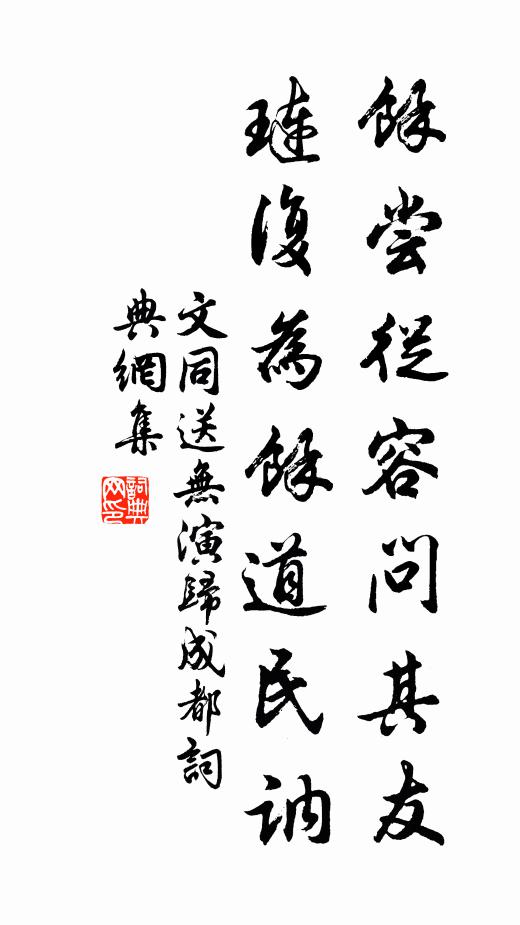 餘嘗從容問其友
璉復為餘道民訥
文同送無演歸成都詞
典網集
詞典网印